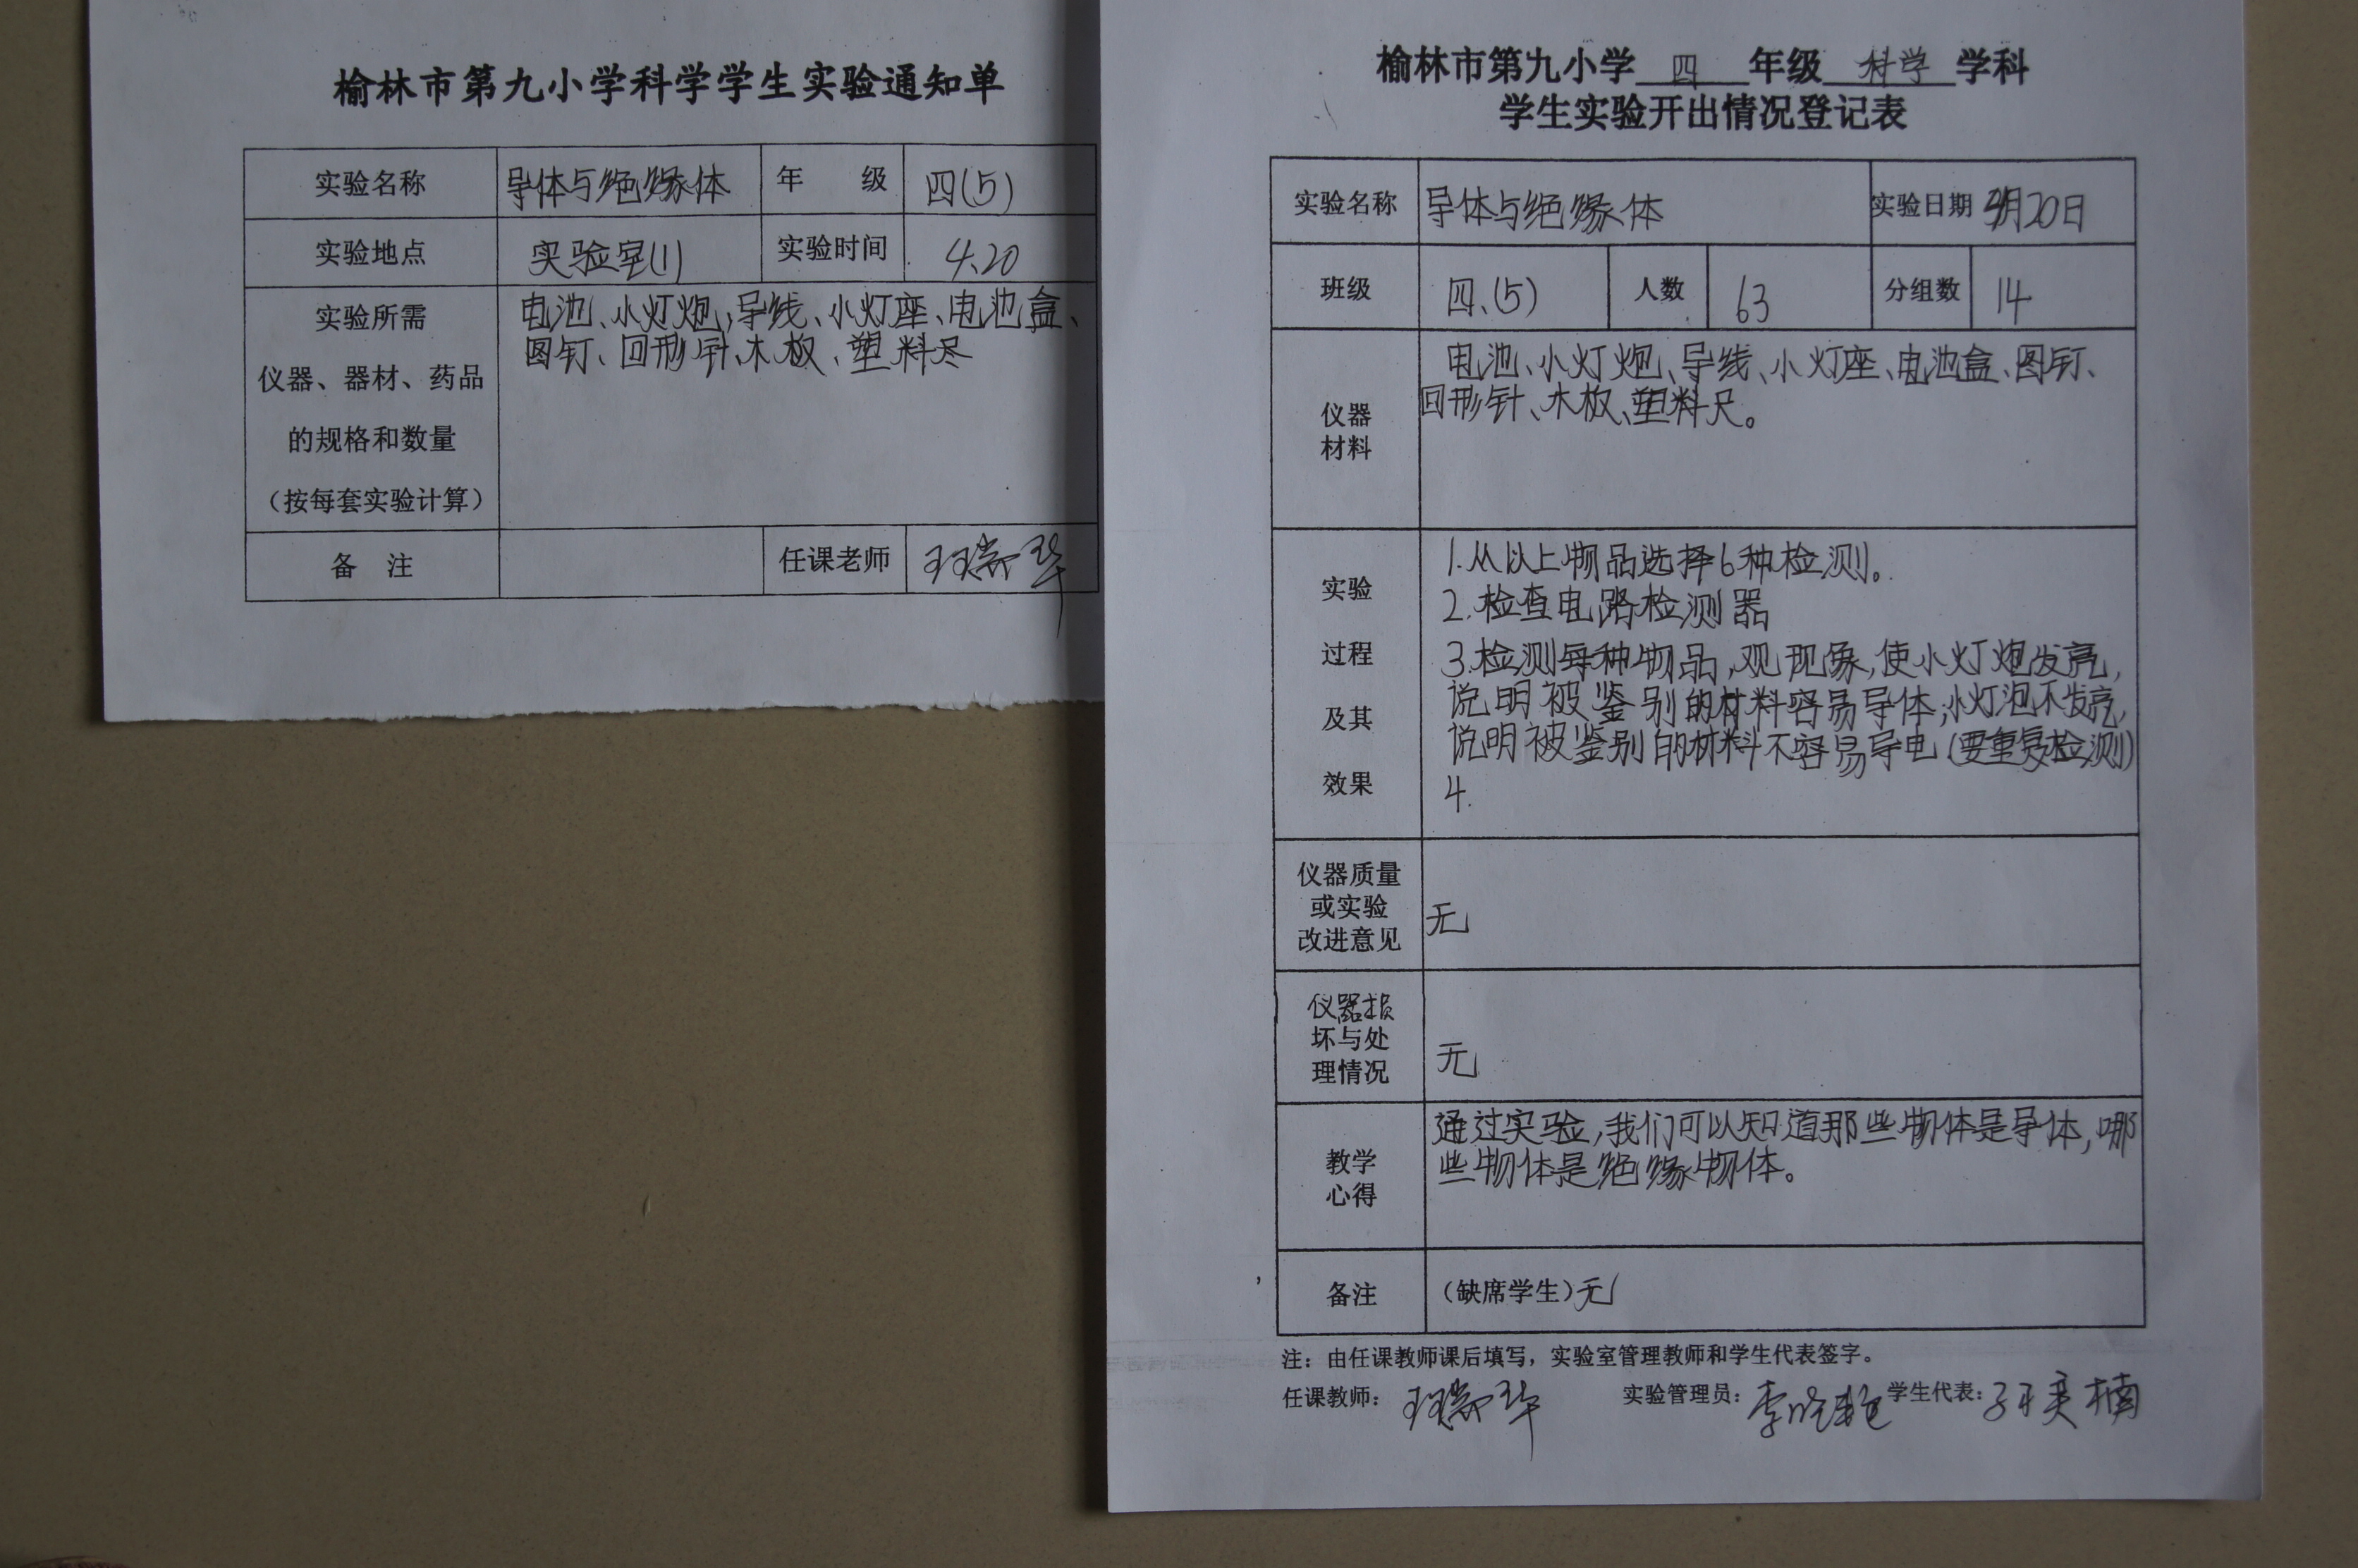 榆林市第九小学科学学生实验通知单
实验名称 导体与绝缘体 年 级 四(5)
实验地点 实验室(1) 实验时间 4.20
实验所需
仪器、器材、药品
的规格和数量
（按每套实验计算）
电池、小灯炮,导线、小灯座、电池盒、
图钉、回形针、木板、塑料尺
备 注 任课老师
榆林市第九小学 四 年级 科学 学科
学生实验开出情况登记表
实验名称 导体与绝缘体 实验日期 4月20日
班级 四.(5) 人数 63 分组数 14
仪器
材料
电池、小灯炮、导线、小灯座、电池盒、图钉、
回形针、木板、塑料尺。
实验
过程
及其
效果
1.从以上物品选择6种检测。
2.检查电路检测器
3.检测每种物品,观现象,使小灯炮发亮,
说明被鉴别的材料容易导体;小灯泡不发亮,
说明被鉴别的材料不容易导电(要重复检测)
4.
仪器质量
或实验
改进意见
无
仪器损
坏与处
理情况
无
教学
心得
通过实验,我们可以知道那些物体是导体,哪
些物体是绝缘物体。
备注 （缺席学生）无
注：由任课教师课后填写，实验室管理教师和学生代表签字。
任课教师： 实验管理员： 学生代表：